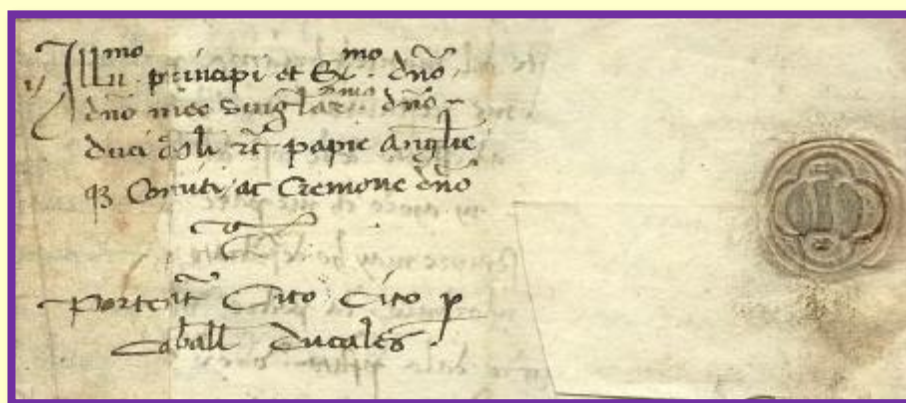 Ill.mo principi et Ex.mo dño
dño meo Singlar.mo dño
duci &c papie Anglie
qȝ Comiti, ac Cremone dño
Portent Cito Cito p
Caball ducales.